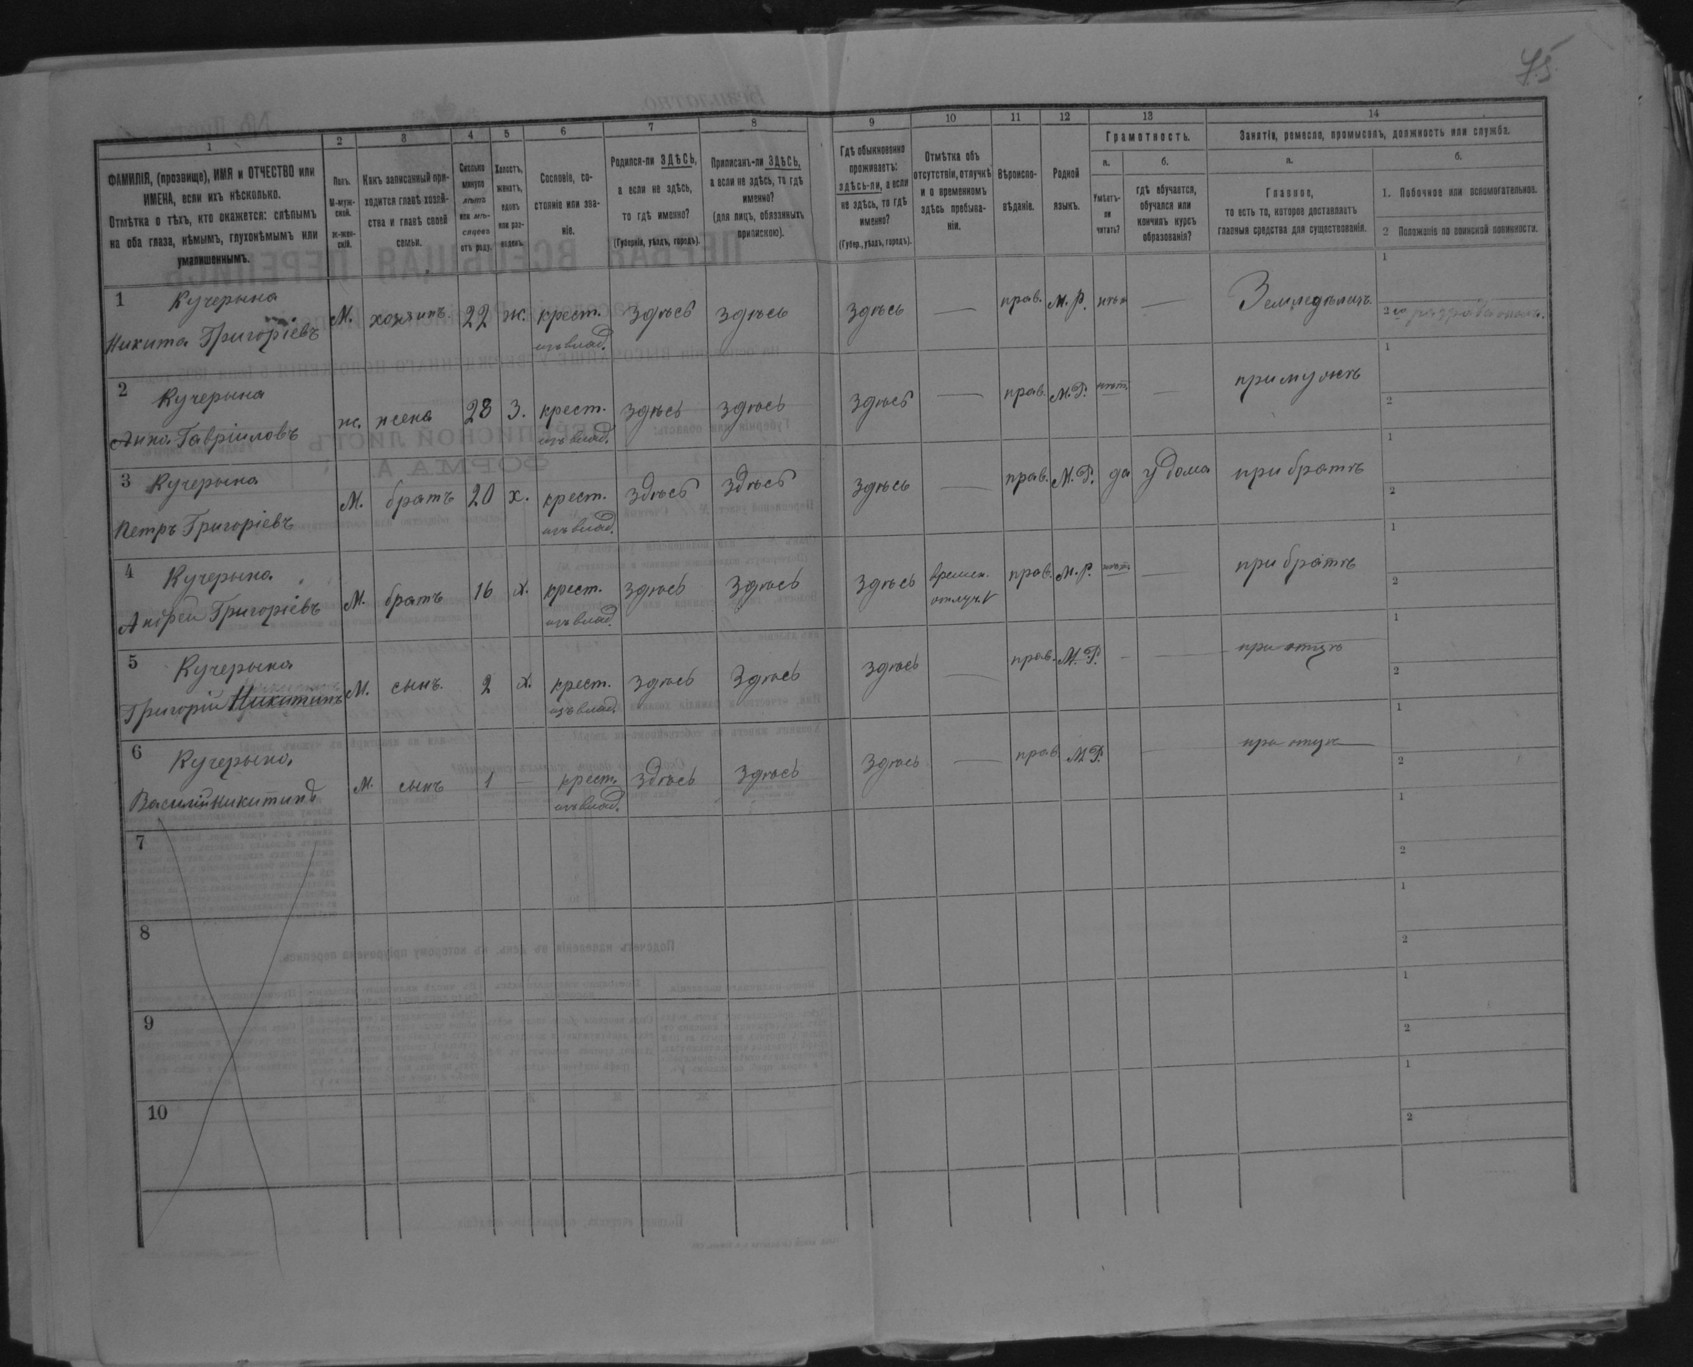 45
1 2 3 4 5 6 7 8 9 10 11 12 13 14
ФАМИЛІЯ, (прозвище), ИМЯ и ОТЧЕСТВО или
ИМЕНА, если ихъ нѣсколько.
Отмѣтка о тѣхъ, кто окажется: слѣпымъ
на оба глаза, нѣмымъ, глухонѣмымъ или
умалишеннымъ.
Полъ.
М-муж-
ской.
ж-жен-
скій.
Какъ записанный при-
ходится главѣ хозяй-
ства и главѣ своей
семьи.
Сколько
минуло
лѣтъ
или мѣ-
сяцевъ
отъ роду.
Холостъ,
женатъ,
вдовъ
или раз-
веденъ.
Сословіе, со-
стояніе или зва-
ніе.
Родился-ли ЗДѢСЬ,
а если не здѣсь,
то гдѣ именно?
(Губернія, уѣздъ, городъ).
Приписанъ-ли ЗДѢСЬ,
а если не здѣсь, то гдѣ
именно?
(для лицъ, обязанныхъ
припискою).
Гдѣ обыкновенно
проживаетъ:
здѣсь-ли, а если
не здѣсь, то гдѣ
именно?
(Губер., уѣздъ, городъ).
Отмѣтка объ
отсутствіи, отлучкѣ
и о временномъ
здѣсь пребыва-
ніи.
Вѣроиспо-
вѣданіе.
Родной
языкъ.
Грамотность.
а.
Умѣетъ-
ли
читать?
б.
гдѣ обучается,
обучался или
кончилъ курсъ
образованія?
Занятія, ремесло, промыселъ, должность или служба.
а.
Главное,
то есть то, которое доставляетъ
главныя средства для существованія.
б.
1. Побочное или вспомогательное.
2 Положеніе по воинской повинности.
1 Кучерына
Никита Григоріевъ М. хозяинъ 22 ж. крест. здѣсь здѣсь здѣсь — прав. М.Р. нѣтъ — Земледѣлецъ 1
изъ влад. 2
2 Кучерына
Анна Гавріиловъ ж. жена 23 З. крест. здѣсь здѣсь здѣсь — прав. М.Р. нѣтъ — при мужѣ 1
изъ влад. 2
3 Кучерына
Петръ Григоріевъ М. братъ 20 х. крест. здѣсь здѣсь здѣсь — прав. М.Р. да у дома при братѣ 1
изъ влад. 2
4 Кучерына
Андрей Григоріевъ М. братъ 16 х. крест. здѣсь здѣсь здѣсь времен. прав. М.Р. нѣтъ — при братѣ 1
изъ влад. отлуч. 2
5 Кучерына
Григорій Никитинъ М. сынъ. 2 х. крест. здѣсь здѣсь здѣсь — прав. М.Р. - — при отцѣ 1
изъ влад. 2
6 Кучерына
Василій Никитинъ М. сынъ 1 — крест. здѣсь здѣсь здѣсь — прав. М.Р. — при отцѣ 1
изъ влад. 2
7 1
2
8 1
2
9 1
2
10 1
2